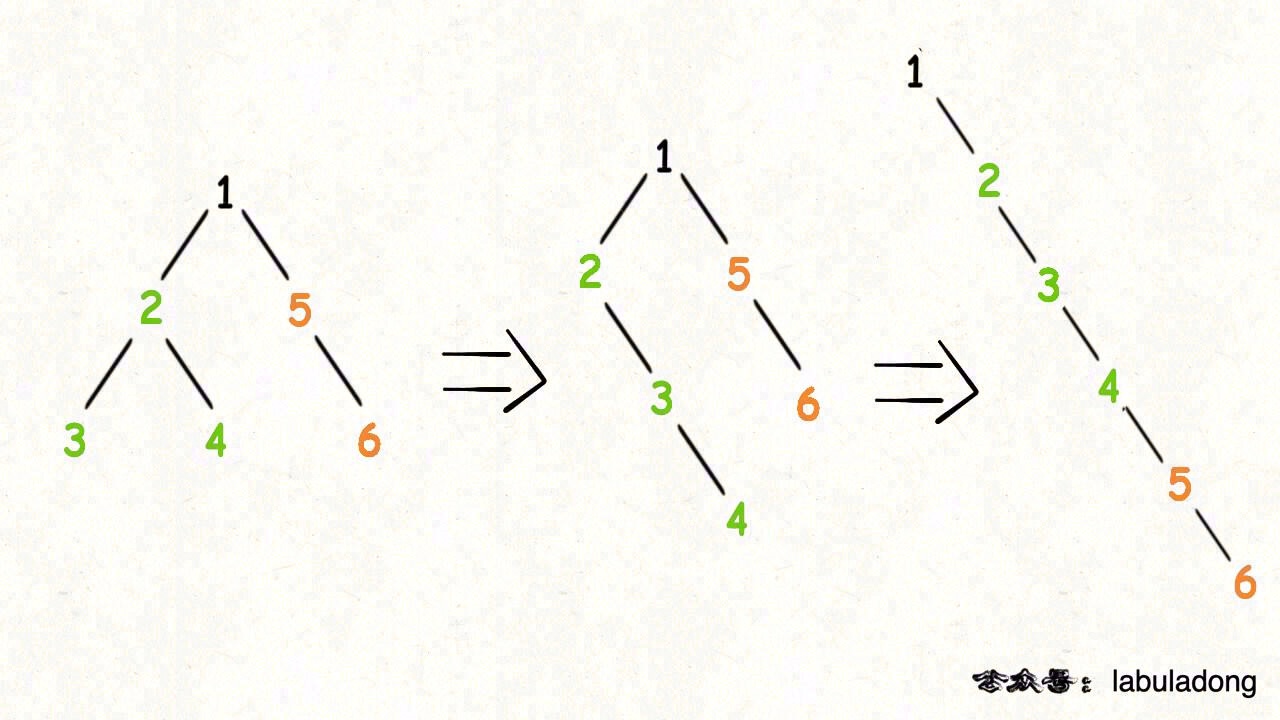 1
2 5
3 4 6
1
2 5
3 6
4
1
2
3
4
5
6
公众号：labuladong